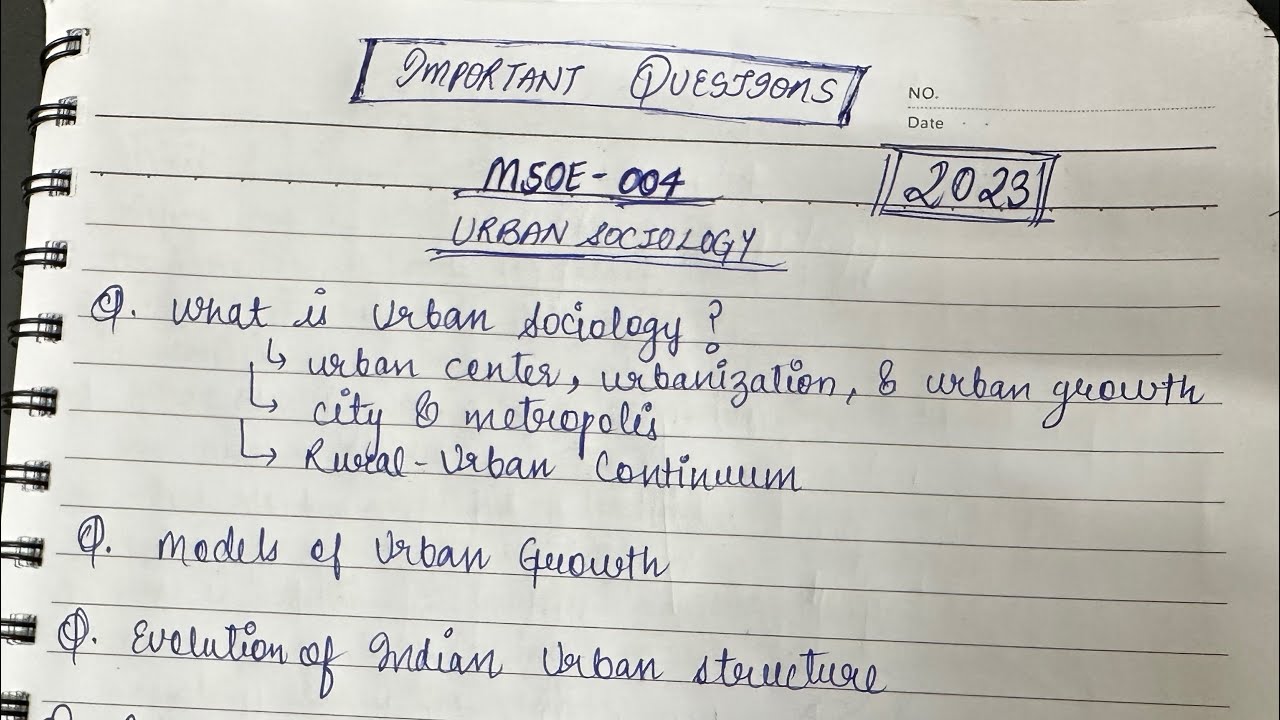 IMPORTANT QUESTIONS
NO.
Date
MSOE-004
2023
URBAN SOCIOLOGY
Q. What is Urban Sociology?
↳ urban center, urbanization, & urban growth
↳ city & metropolis
↳ Rural-Urban Continuum
Q. Models of Urban Growth
Q. Evolution of Indian Urban structure